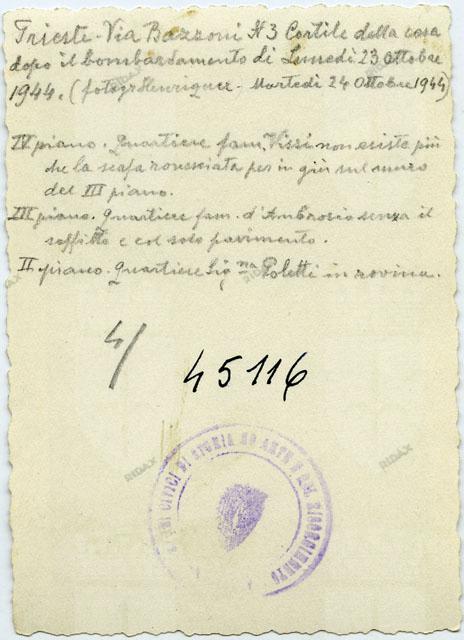 Trieste - Via Bazzoni N 3 Cortile della casa
dopo il bombardamento di Lunedì 23 Ottobre
1944. (fotogr Henriquez - Martedì 24 Ottobre 1944)
IV piano. Quartiere fam. Vissi non esiste più
che la scafa rovesciata per in giù sul muro
del III piano.
III piano. Quartiere fam. d'Ambrosio senza il
soffitto e col solo pavimento.
II piano. Quartiere Sig.na Poletti in rovina.
4/
45116
CIVICI DI STORIA ED ARTE E DEL RISORGIMENTO
RIDAX
RIDAX
RIDAX
RIDAX
RIDAX